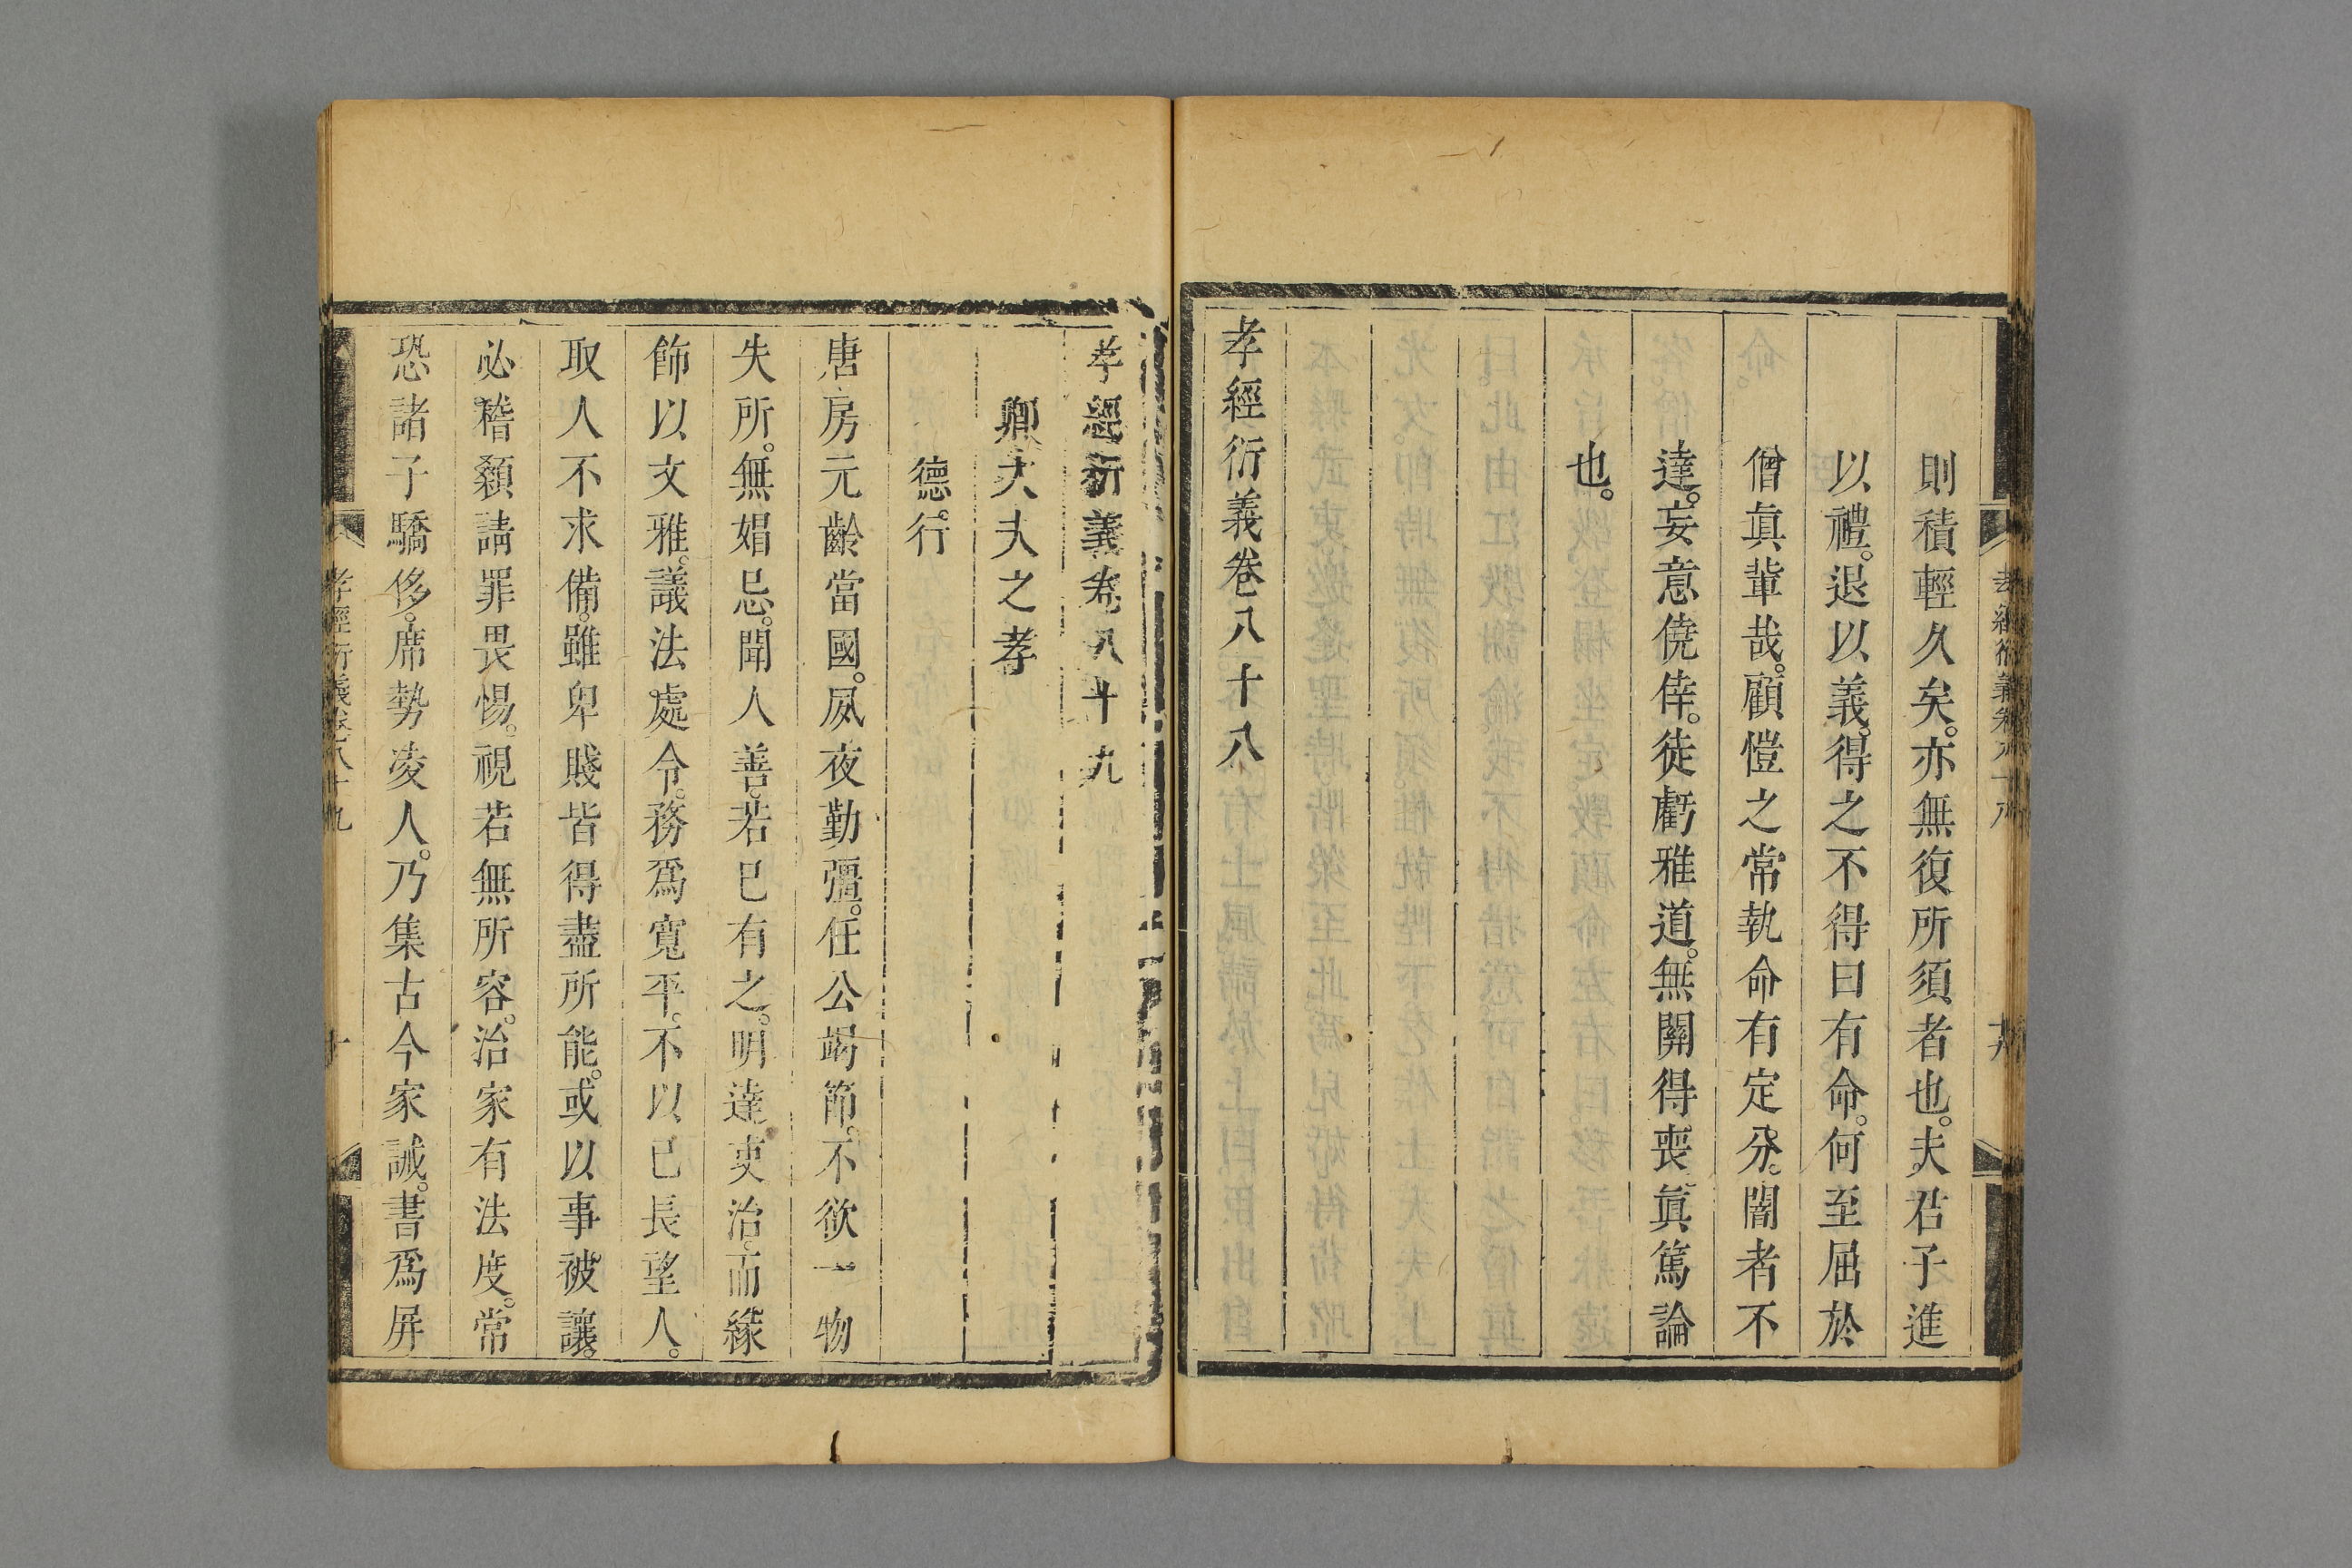 則積輕久矣。亦無復所須者也。夫君子進
以禮。退以義。得之不得曰有命。何至屈於
僧眞輩哉。顧愷之常執命有定分。闇者不
達。妄意僥倖。徒虧雅道。無關得喪。眞篤論
也。
孝經衍義卷八十八
孝經衍義卷八十九
卿大夫之孝
德行
唐房元齡當國。夙夜勤彊。任公竭節。不欲一物
失所。無娼忌。聞人善。若巳有之。明達吏治。而緣
飾以文雅。議法處令。務爲寬平。不以已長望人。
取人不求備。雖卑賤皆得盡所能。或以事被讓。
必稽顙請罪畏惕。視若無所容。治家有法度。常
恐諸子驕侈。席勢凌人。乃集古今家誡。書爲屏
孝經衍義卷八十九